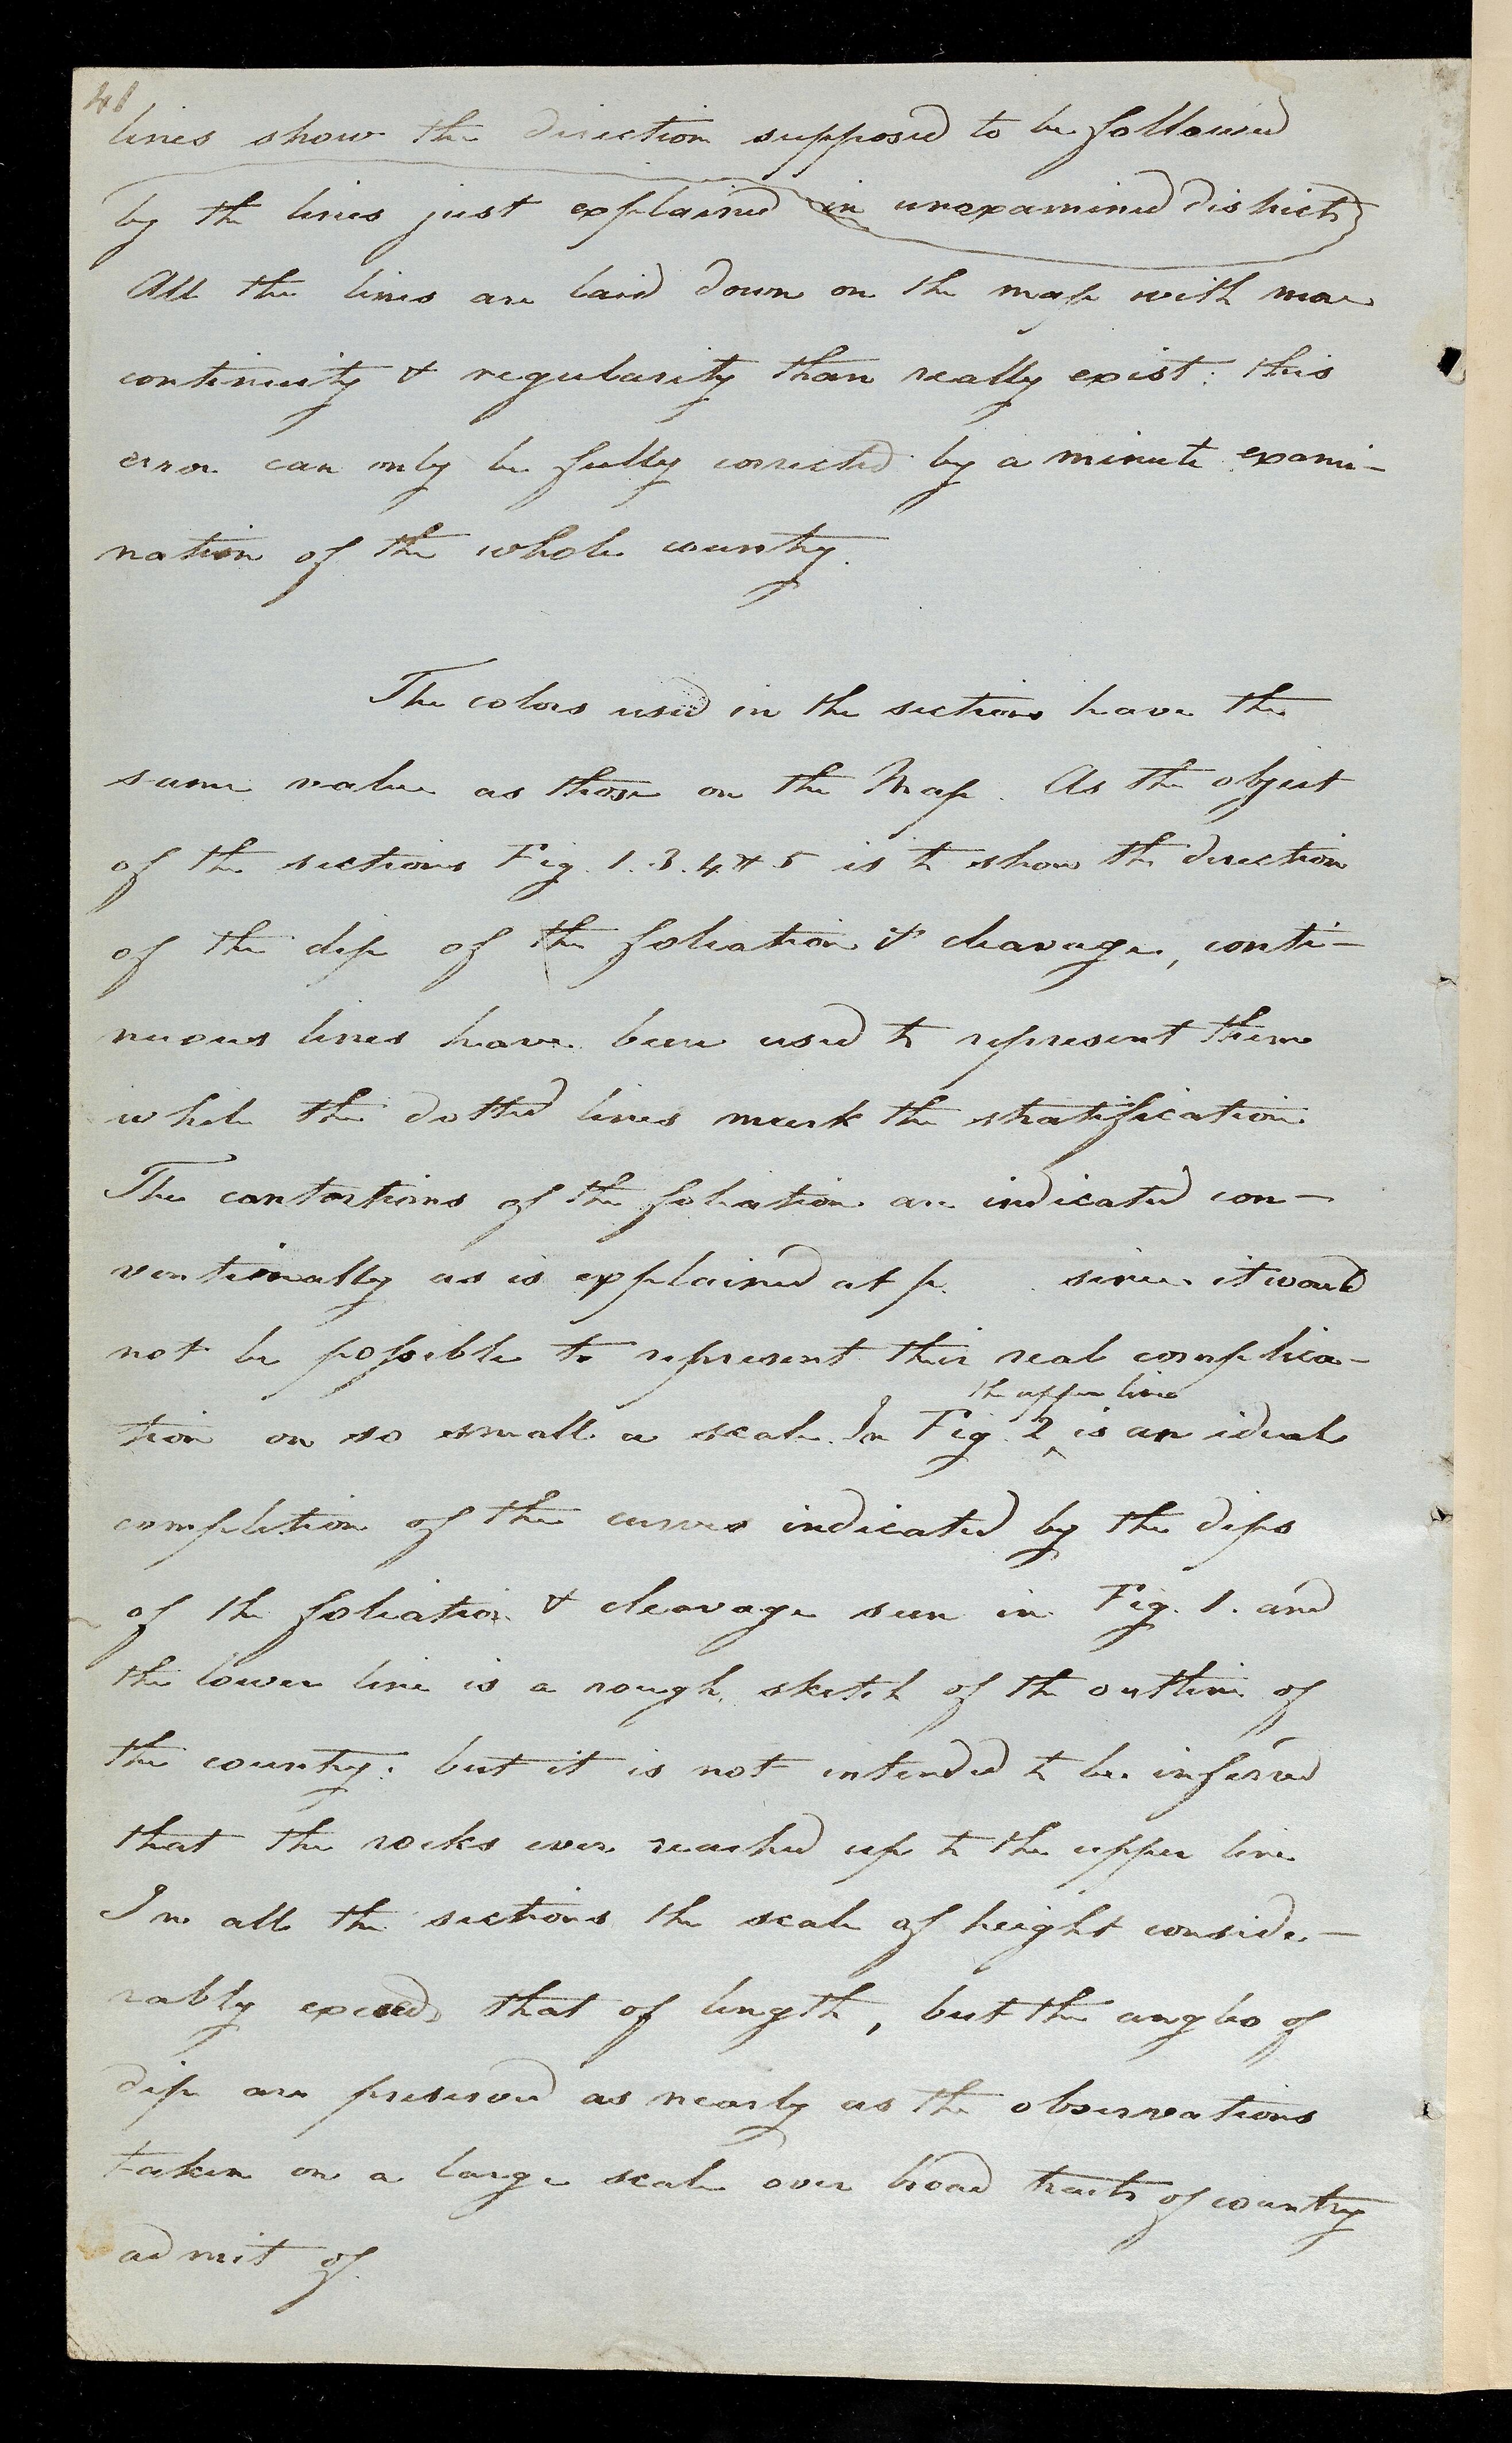 41
lines show the direction supposed to be followed
by the lines just explained in unexamined districts
All the lines are laid down on the map with more
continuity & regularity than really exist: this
error can only be fully corrected by a minute exami-
nation of the whole country.
The colors used in the sections have the
same value as those on the Map. As the object
of the sections Fig. 1. 3. 4 & 5 is to show the direction
of the dip of the foliation & cleavage, conti-
nuous lines have been used to represent them
while the dotted lines mark the stratification.
The contortions of the foliation are indicated con-
ventionally as is explained at p. since it would
not be possible to represent their real complica-
the upper line
tion on so small a scale. In Fig. 2 ^ is an ideal
completion of the curves indicated by the dips
of the foliation & cleavage seen in Fig. 1. and
the lower line is a rough sketch of the outline of
the country: but it is not intended to be inferred
that the rocks ever reached up to the upper line
In all the sections the scale of height conside-
rably exceeds that of length, but the angles of
dip are preserved as nearly as the observations
taken on a large scale over broad tracts of country
admit of.